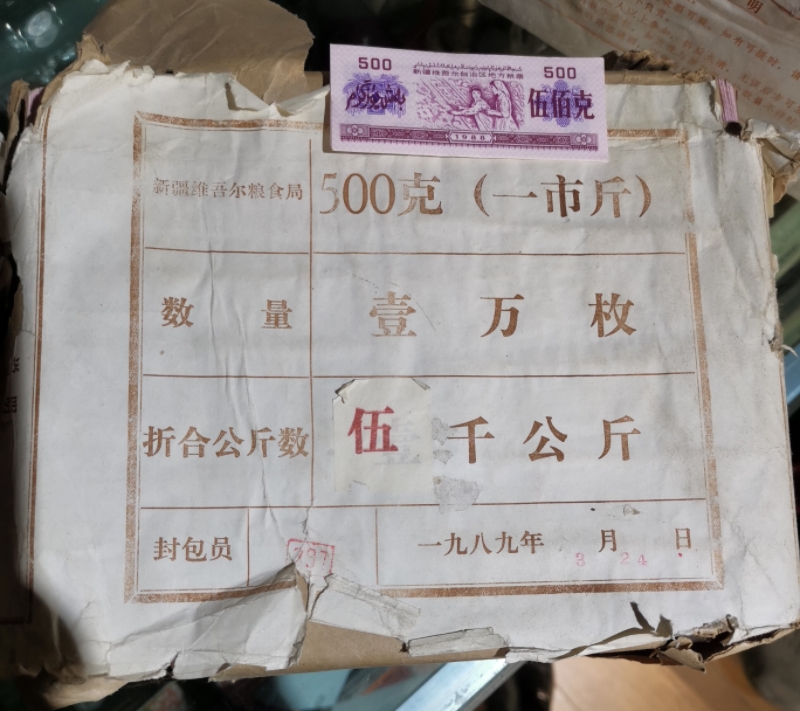 500
500
新疆维吾尔自治区地方粮票
伍佰克
1988
新疆维吾尔粮食局
500克(一市斤)
数量
壹万枚
折合公斤数
伍千公斤
封包员
797
一九八九年 3月24日
明